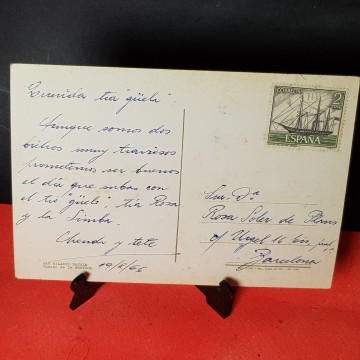 Querida tía "güela"
Aunque somos dos
bichos muy traviesos
prometemos ser buenos
el día que subas con
el tío "güelo", tía Rosa
y la Simba.
y tete
19/8/66
CORREOS
2
ESPAÑA
Sra. Dª
Rosa Soler de Plans
c/ Urgel 16 bis
Barcelona